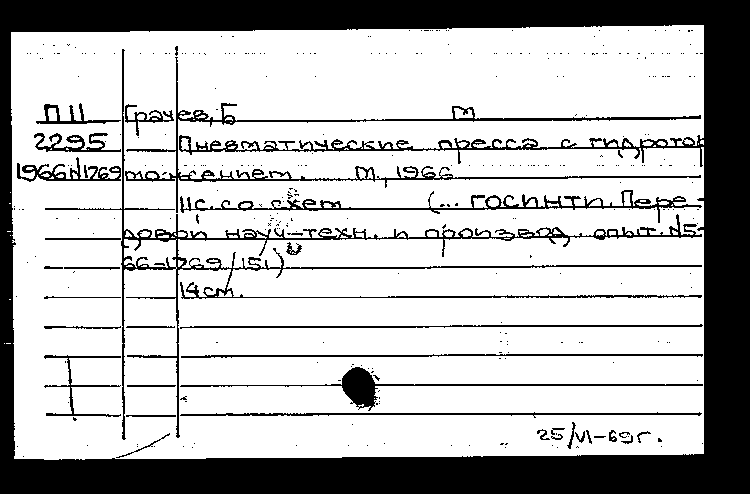 П II Грачев, Б М
2295 Пневматические пресса с гидротор
1966 N1769 можением. М, 1966
11с. со схем (... ГОСИНТИ. Пере-
довой науч-техн. и произвед. опыт. N5-
66-1769/151)
14см.
25/VI-69г.